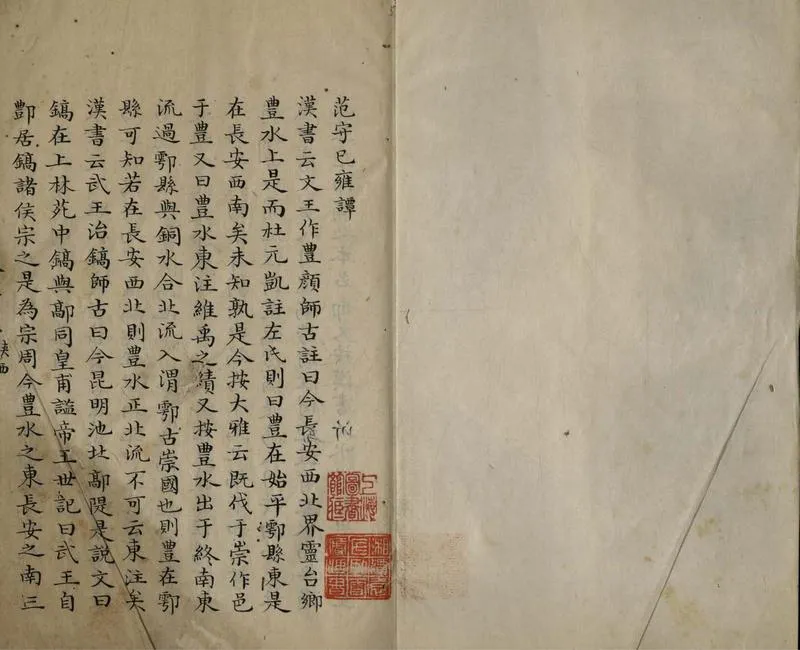 范守已雍譚
漢書云文王作豊顔師古註曰今長安西北界靈台鄉
豊水上是而杜元凱註左氏則曰豊在始平鄠縣東是
在長安西南矣未知孰是今按大雅云既伐于崇作邑
于豊又曰豊水東注維禹之績又按豊水出于終南東
流過鄠縣與銅水合北流入渭鄠古崇國也則豊在鄠
縣可知若在長安西北則豊水正北流不可云東注矣
漢書云武王治鎬師古曰今昆明池北鄗隄是說文曰
鎬在上林苑中鎬與鄗同皇甫謐帝王世記曰武王自
酆居鎬諸侯宗之是為宗周今豊水之東長安之南三
陝西